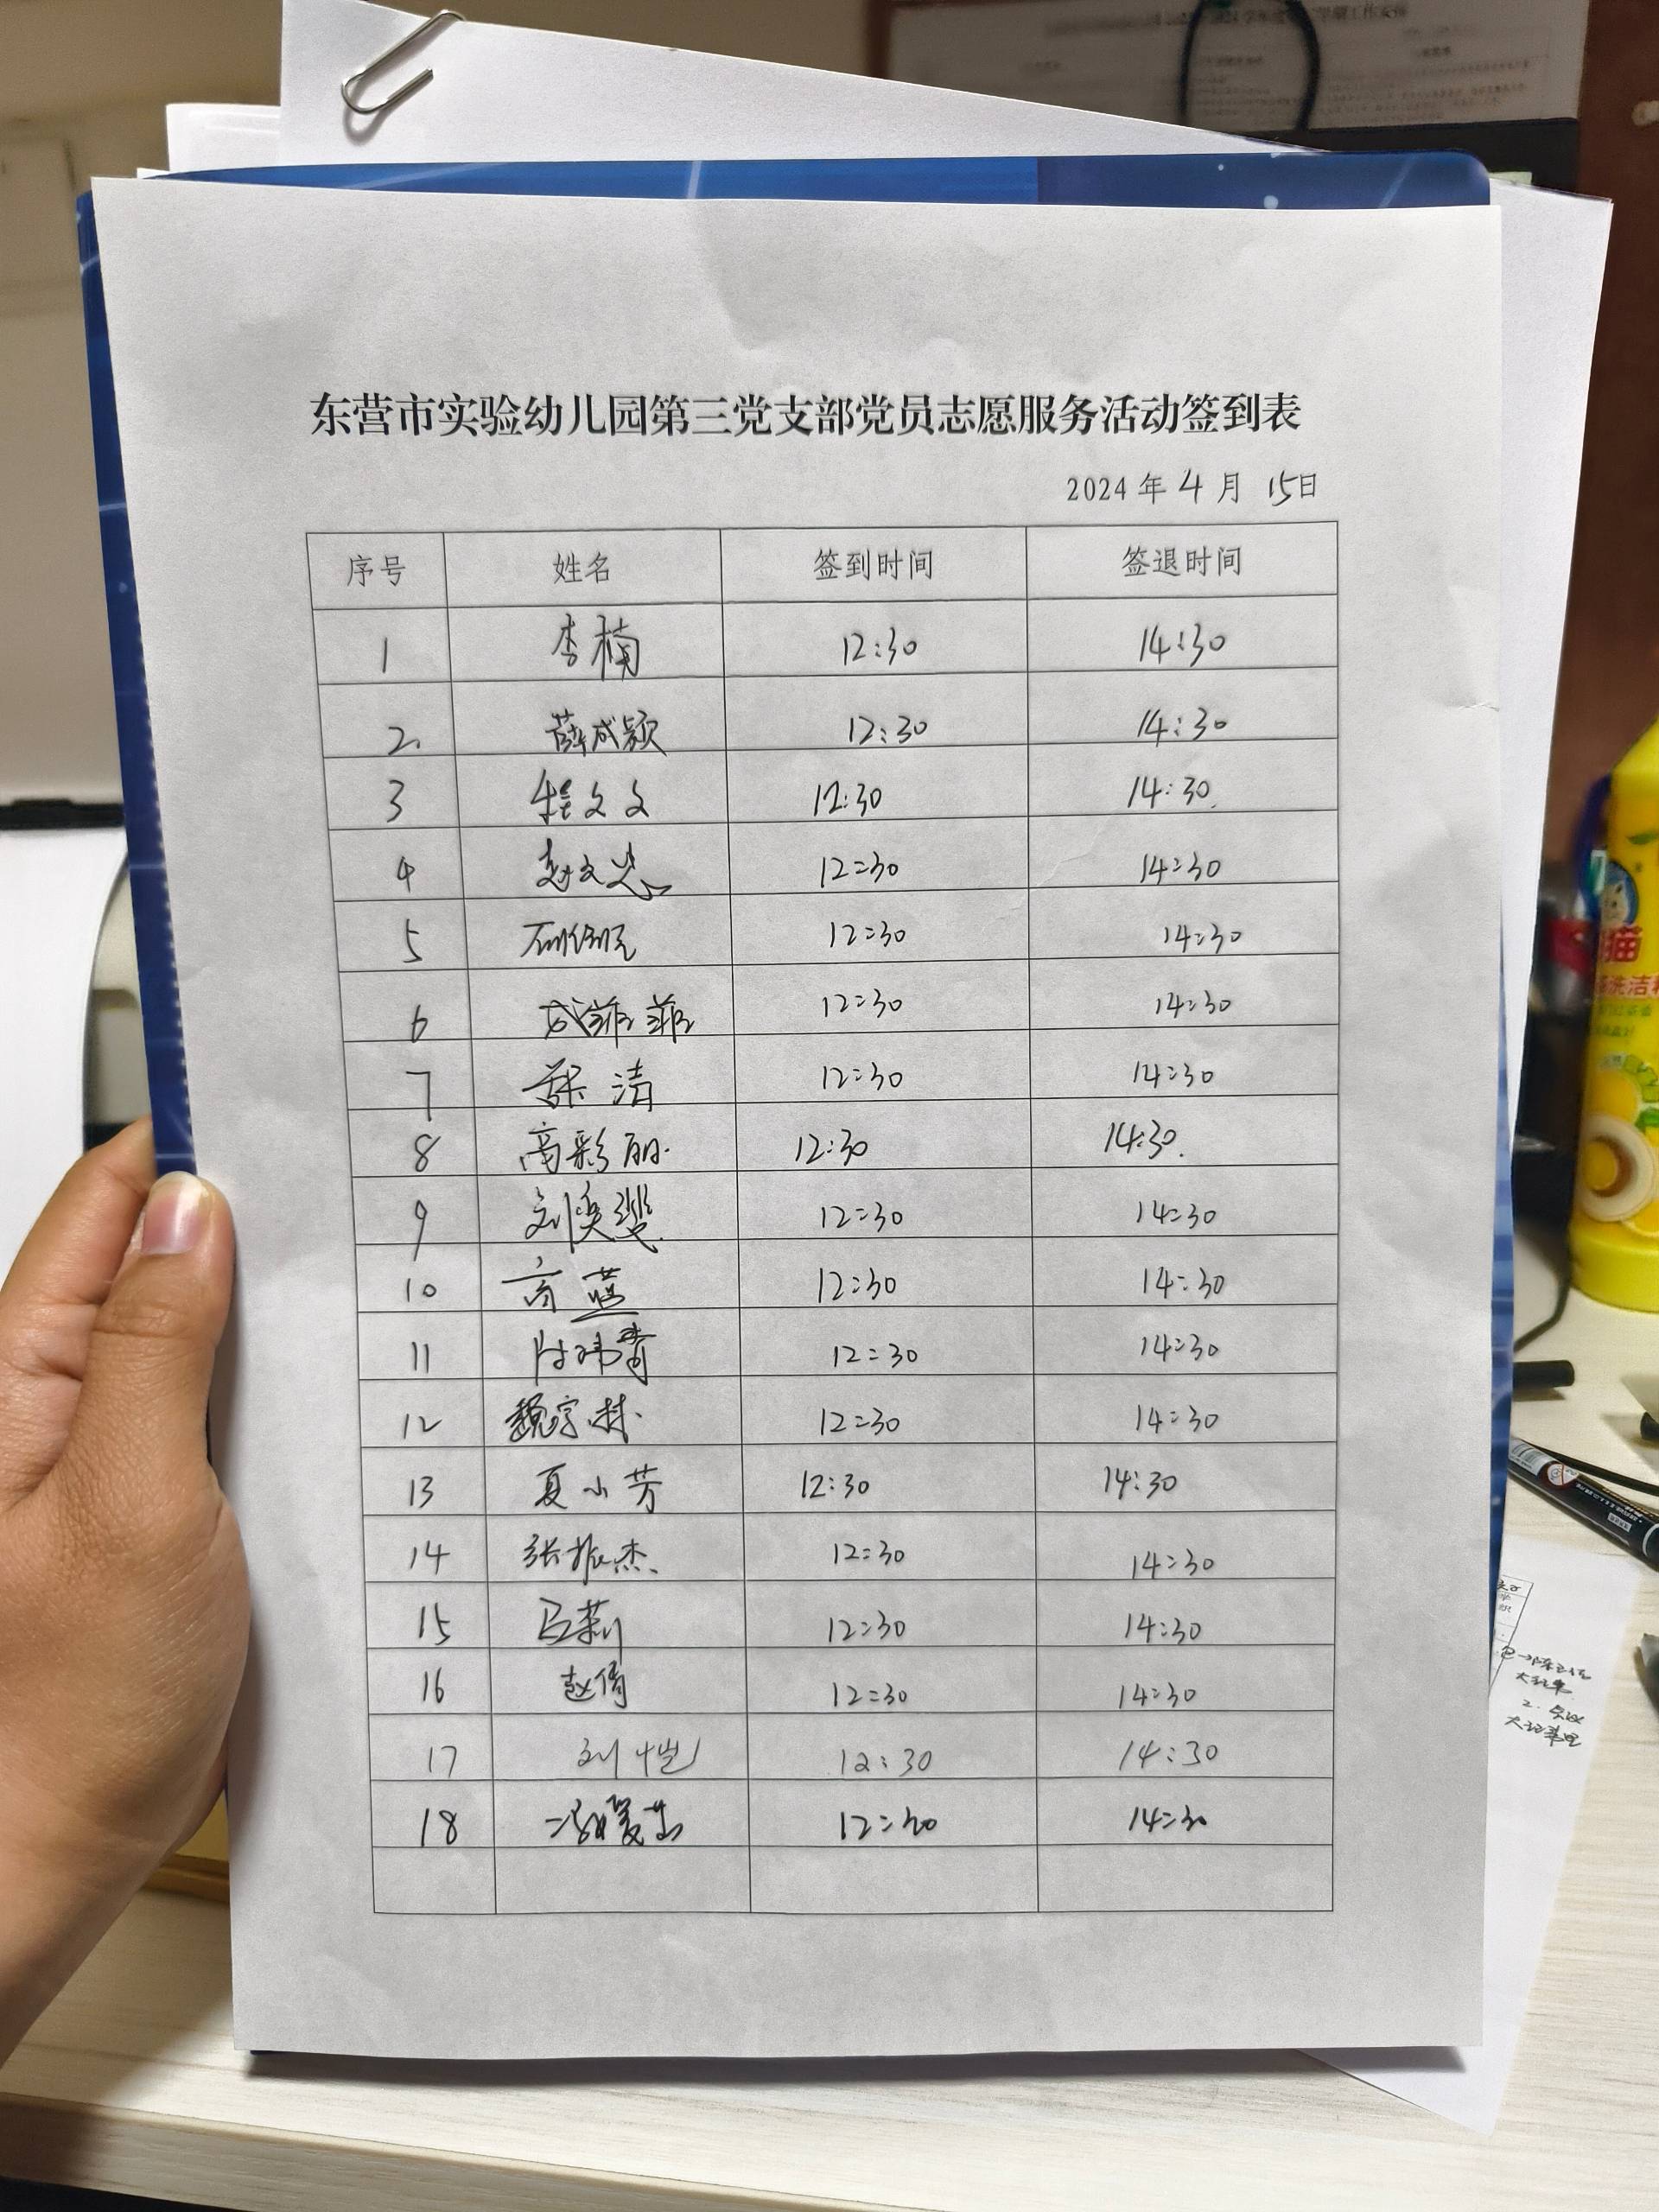 东营市实验幼儿园第三党支部党员志愿服务活动签到表
2024年4月15日
序号 姓名 签到时间 签退时间
1 李楠 12:30 14:30
2 薛成颖 12:30 14:30
3 程文文 12:30 14:30
4 赵文 12:30 14:30
5 12:30 14:30
6 成菲菲 12:30 14:30
7 张清 12:30 14:30
8 高彩丽 12:30 14:30
9 刘奕 12:30 14:30
10 高蓝 12:30 14:30
11 12:30 14:30
12 魏字林 12:30 14:30
13 夏小芳 12:30 14:30
14 张振杰 12:30 14:30
15 马莉 12:30 14:30
16 赵倩 12:30 14:30
17 刘恺 12:30 14:30
18 12:30 14:30
猫
洗洁精